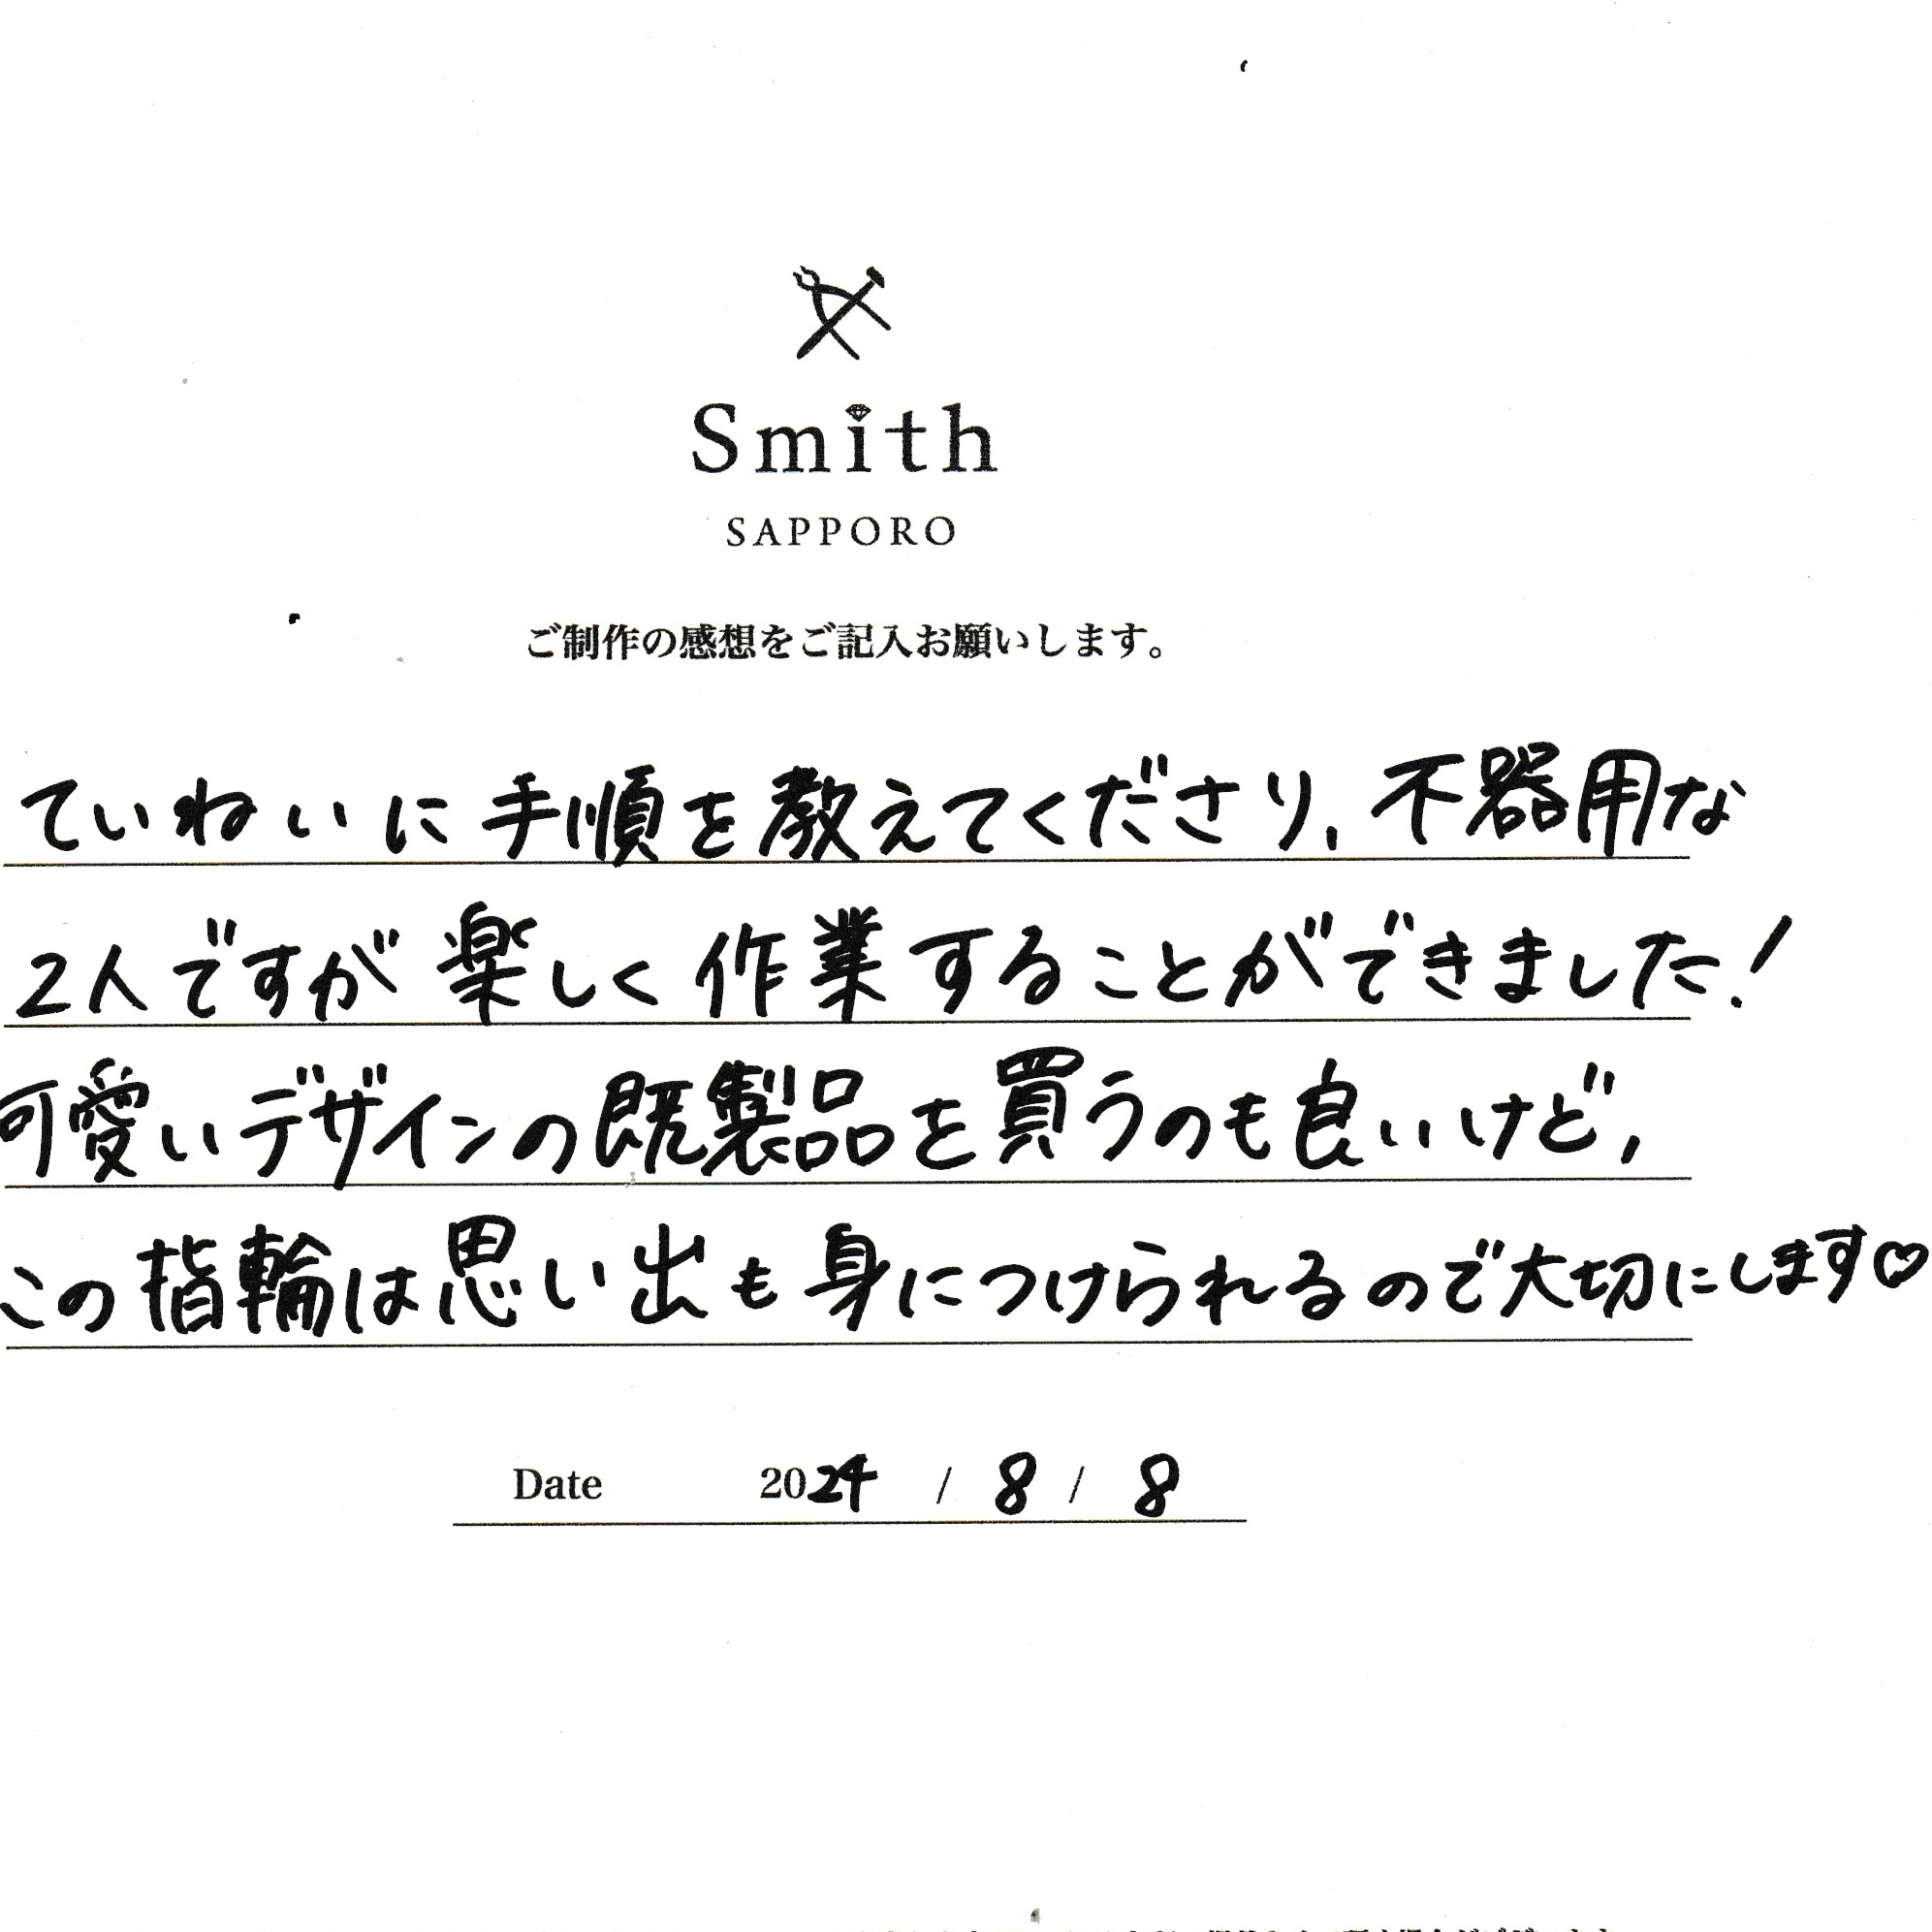 Smith
SAPPORO
ご制作の感想をご記入お願いします。
ていねいに手順を教えてくださり、不器用な
2人ですが楽しく作業することができました!
可愛いデザインの既製品を買うのも良いけど、
この指輪は思い出も身につけられるので大切にします♡
Date 2024 / 8 / 8